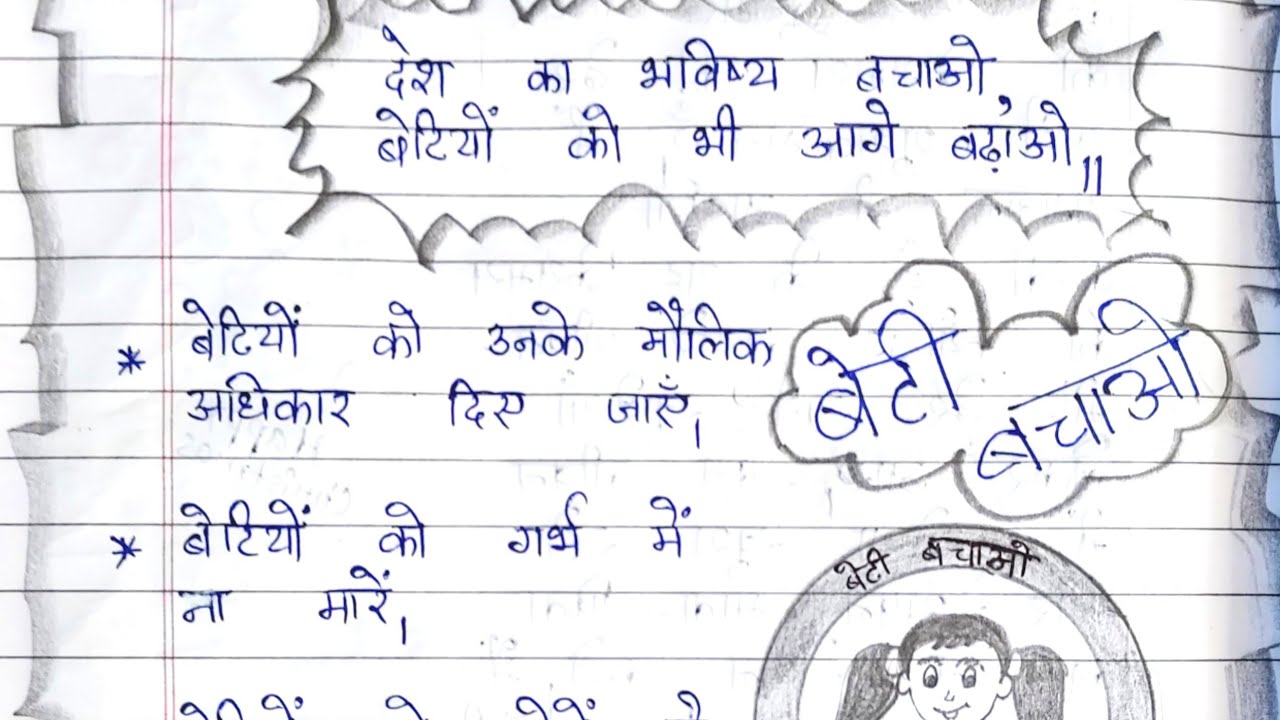 देश का भविष्य बचाओ,
बेटियों को भी आगे बढ़ाओ॥
* बेटियों को उनके मौलिक
अधिकार दिए जाएँ।
बेटी
बचाओ
* बेटियों को गर्भ में
ना मारें।
बेटी बचाओ